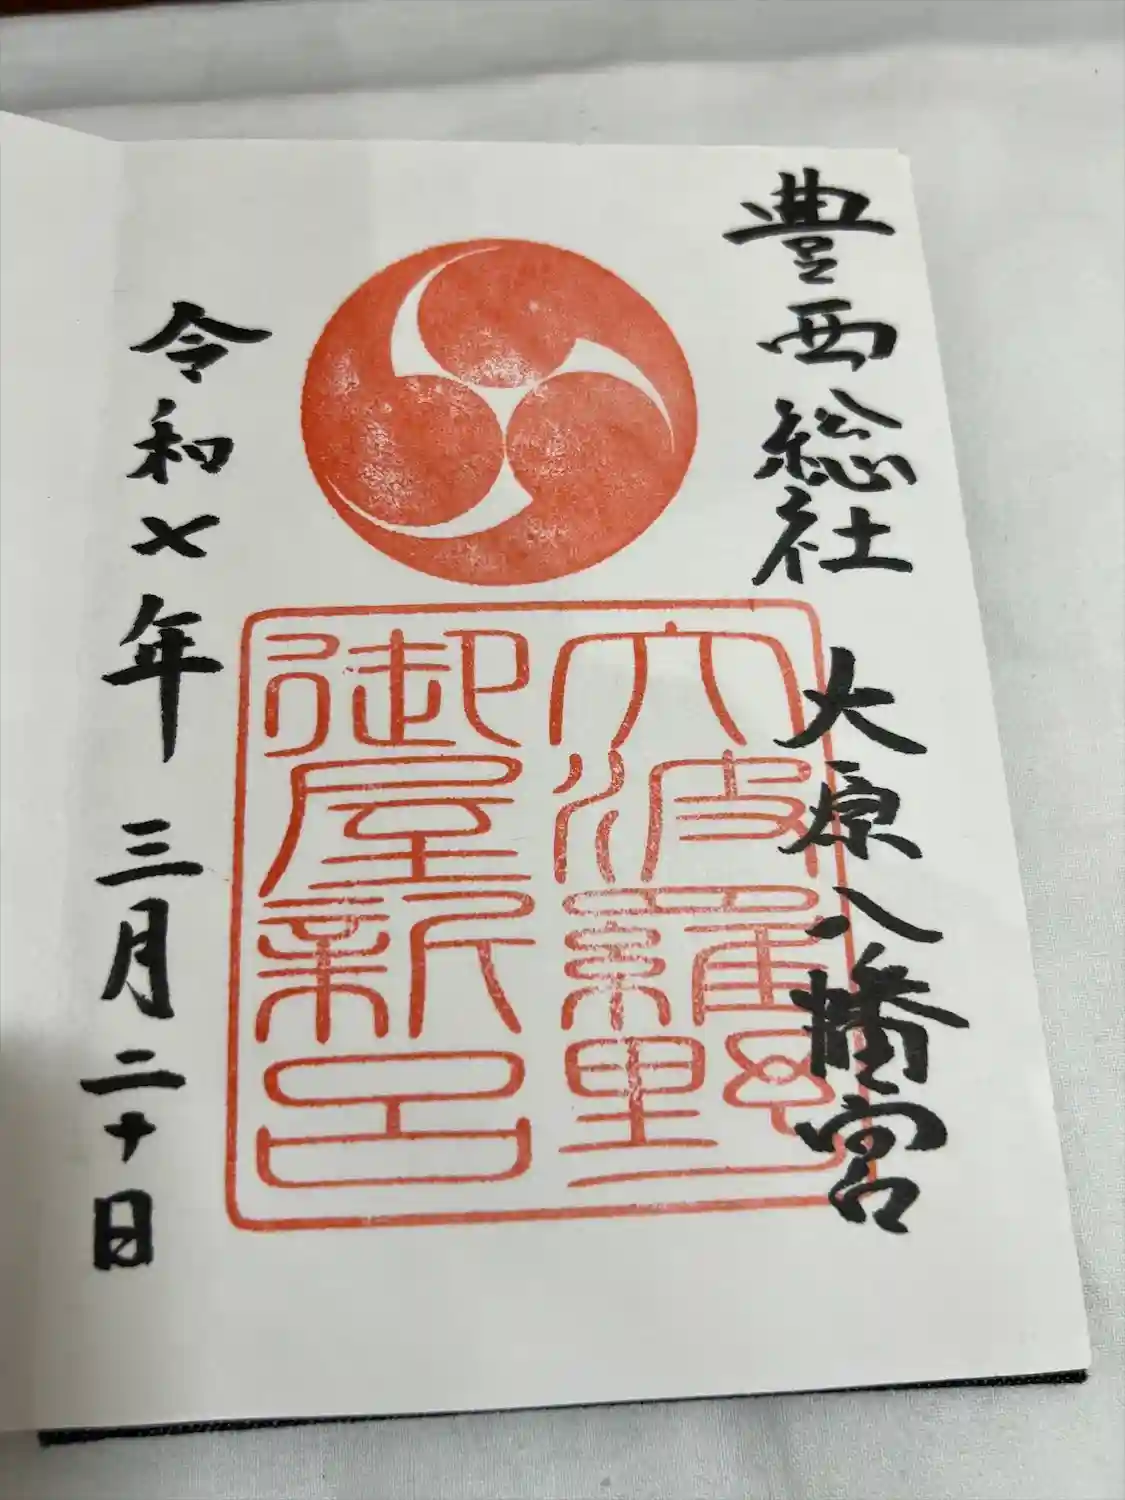 豊西総社 大原八幡宮
大波羅野
御屋新
令和七年 三月二十日